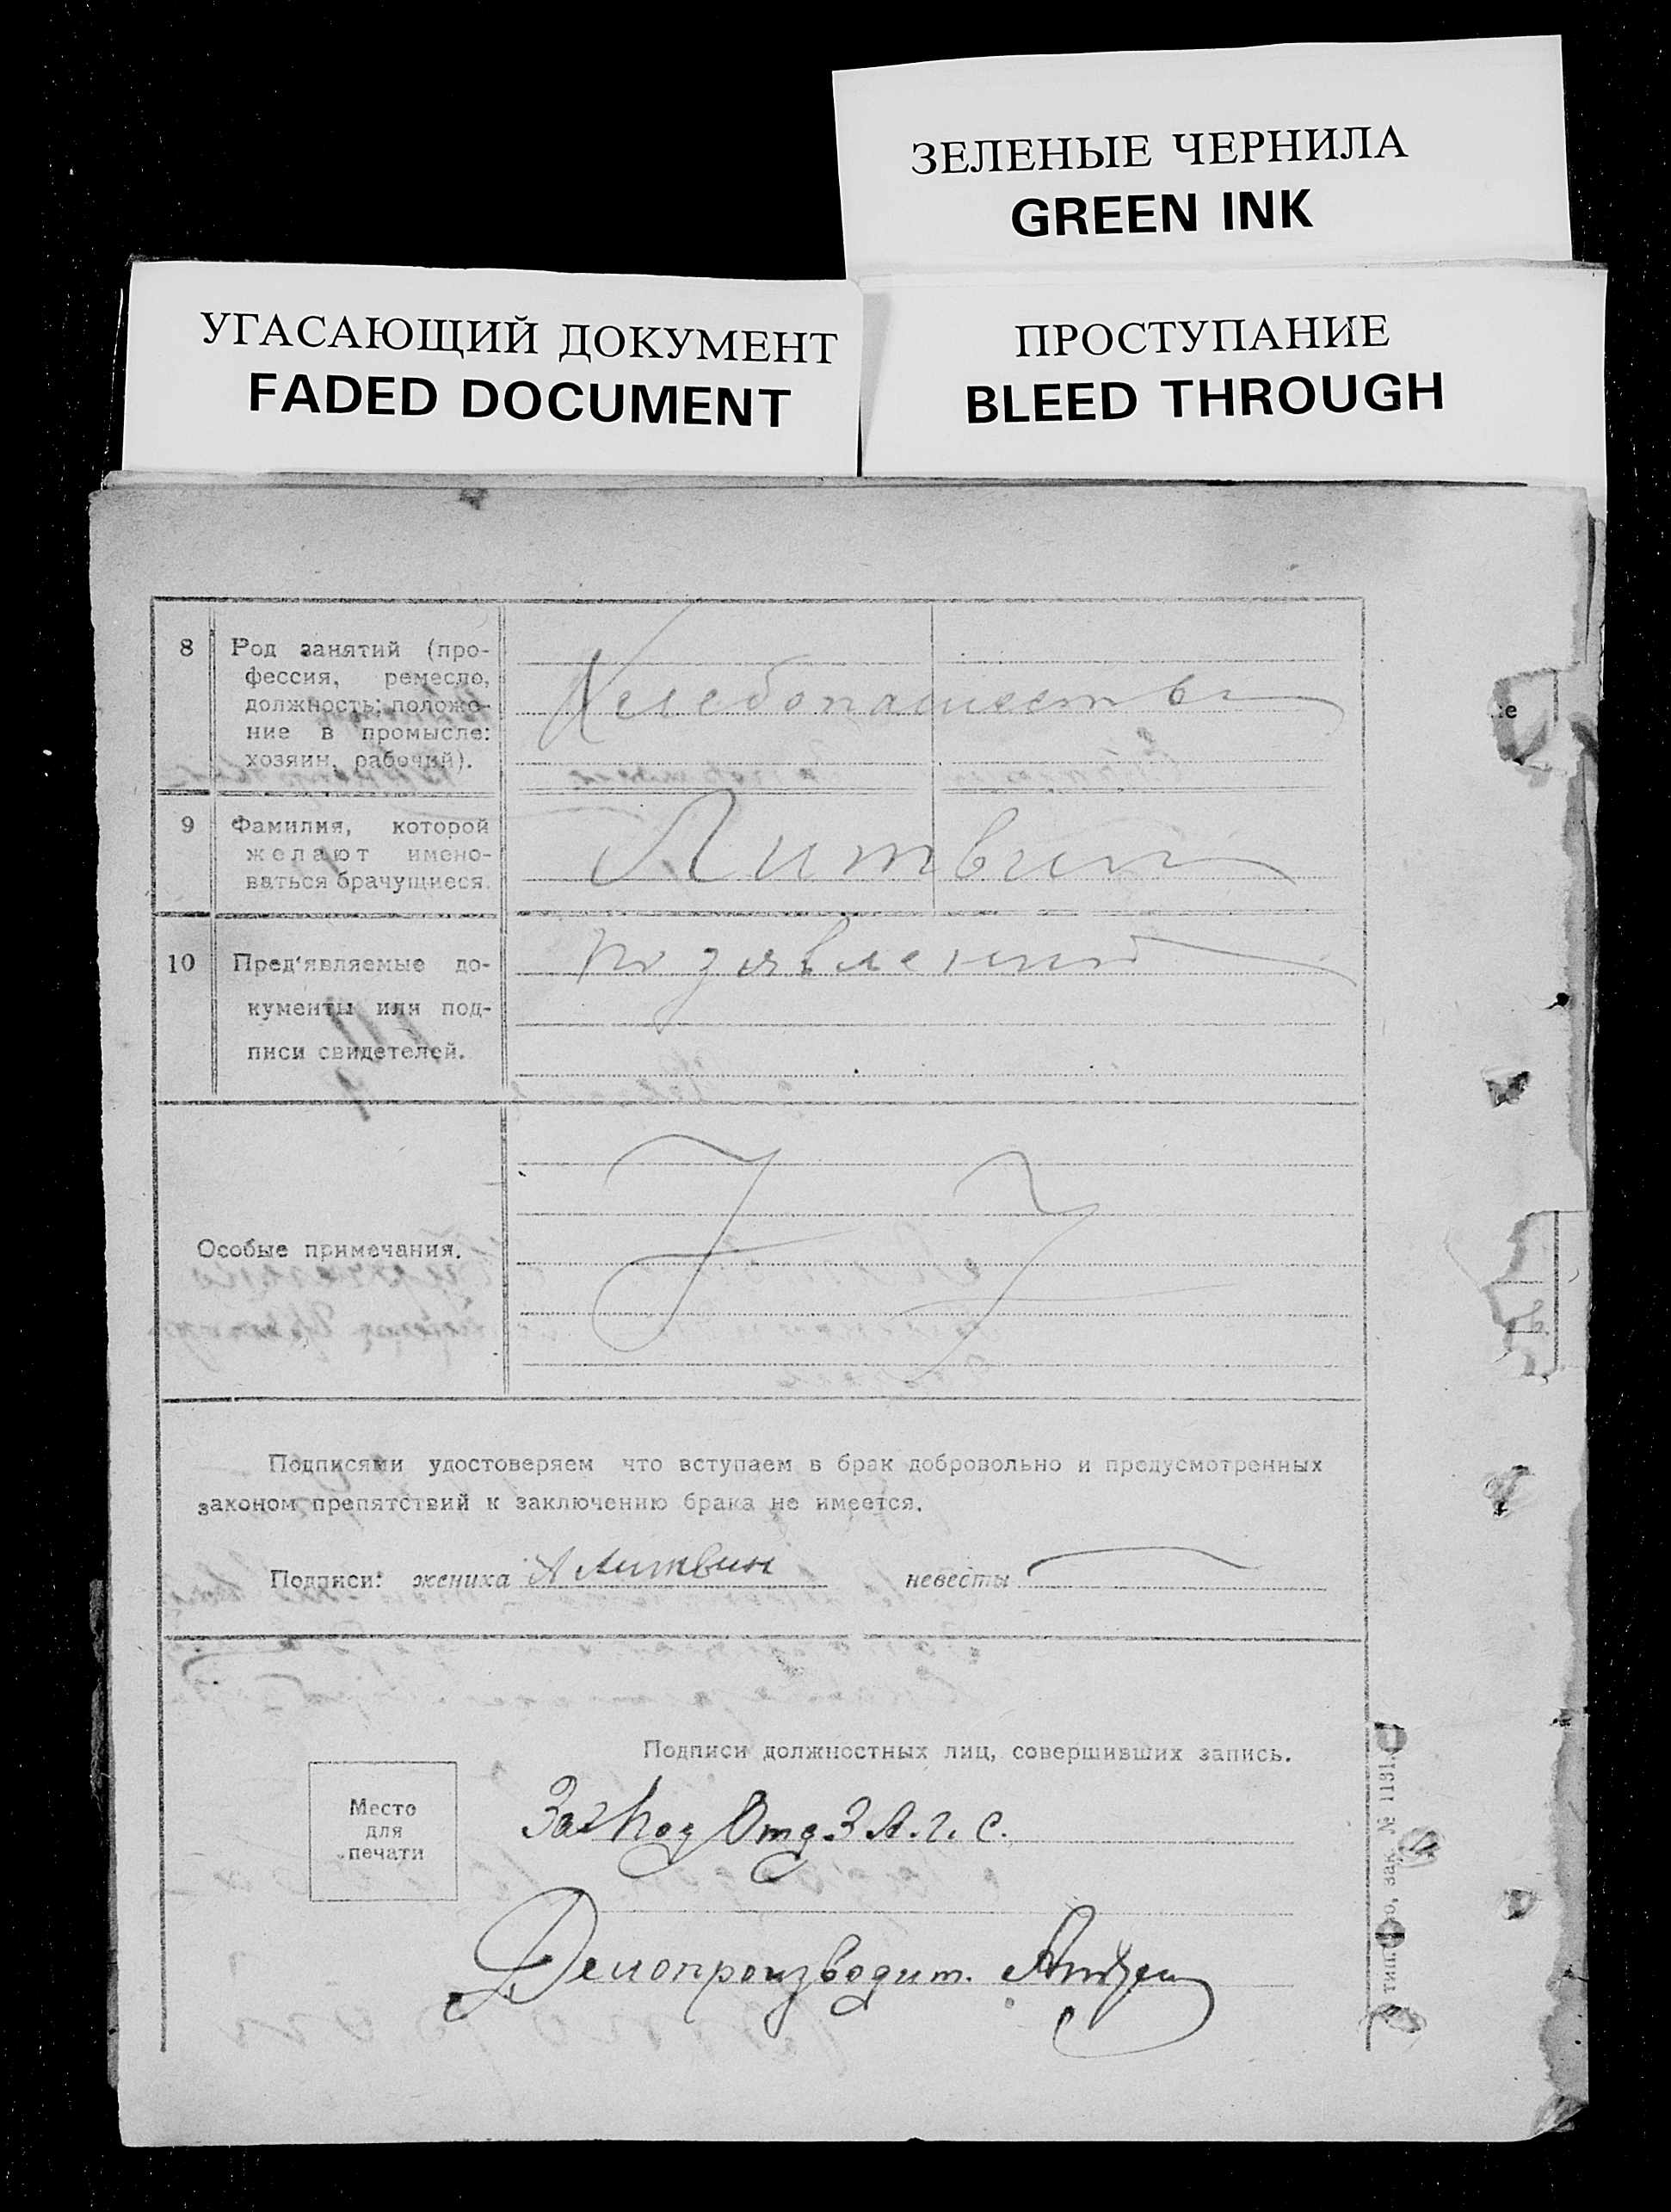 ЗЕЛЕНЫЕ ЧЕРНИЛА
GREEN INK
УГАСАЮЩИЙ ДОКУМЕНТ
FADED DOCUMENT
ПРОСТУПАНИЕ
BLEED THROUGH
8 Род занятий (про-
фессия, ремесло,
должность; положе-
ние в промысле:
хозяин, рабочий).
Хлебопашество
9 Фамилия, которой
желают имено-
ваться брачущиеся.
Литвин
10 Пред'являемые до-
кументы или под-
писи свидетелей.
по заявлению
Особые примечания.
Подписями удостоверяем что вступаем в брак добровольно и предусмотренных
законом препятствий к заключению брака не имеется.
Подписи: жениха А Литвин невесты
Подписи должностных лиц, совершивших запись.
Место
для
печати
Зав Под Отд З.А.Г.С.
Делопроизводит.
зак. № 1131